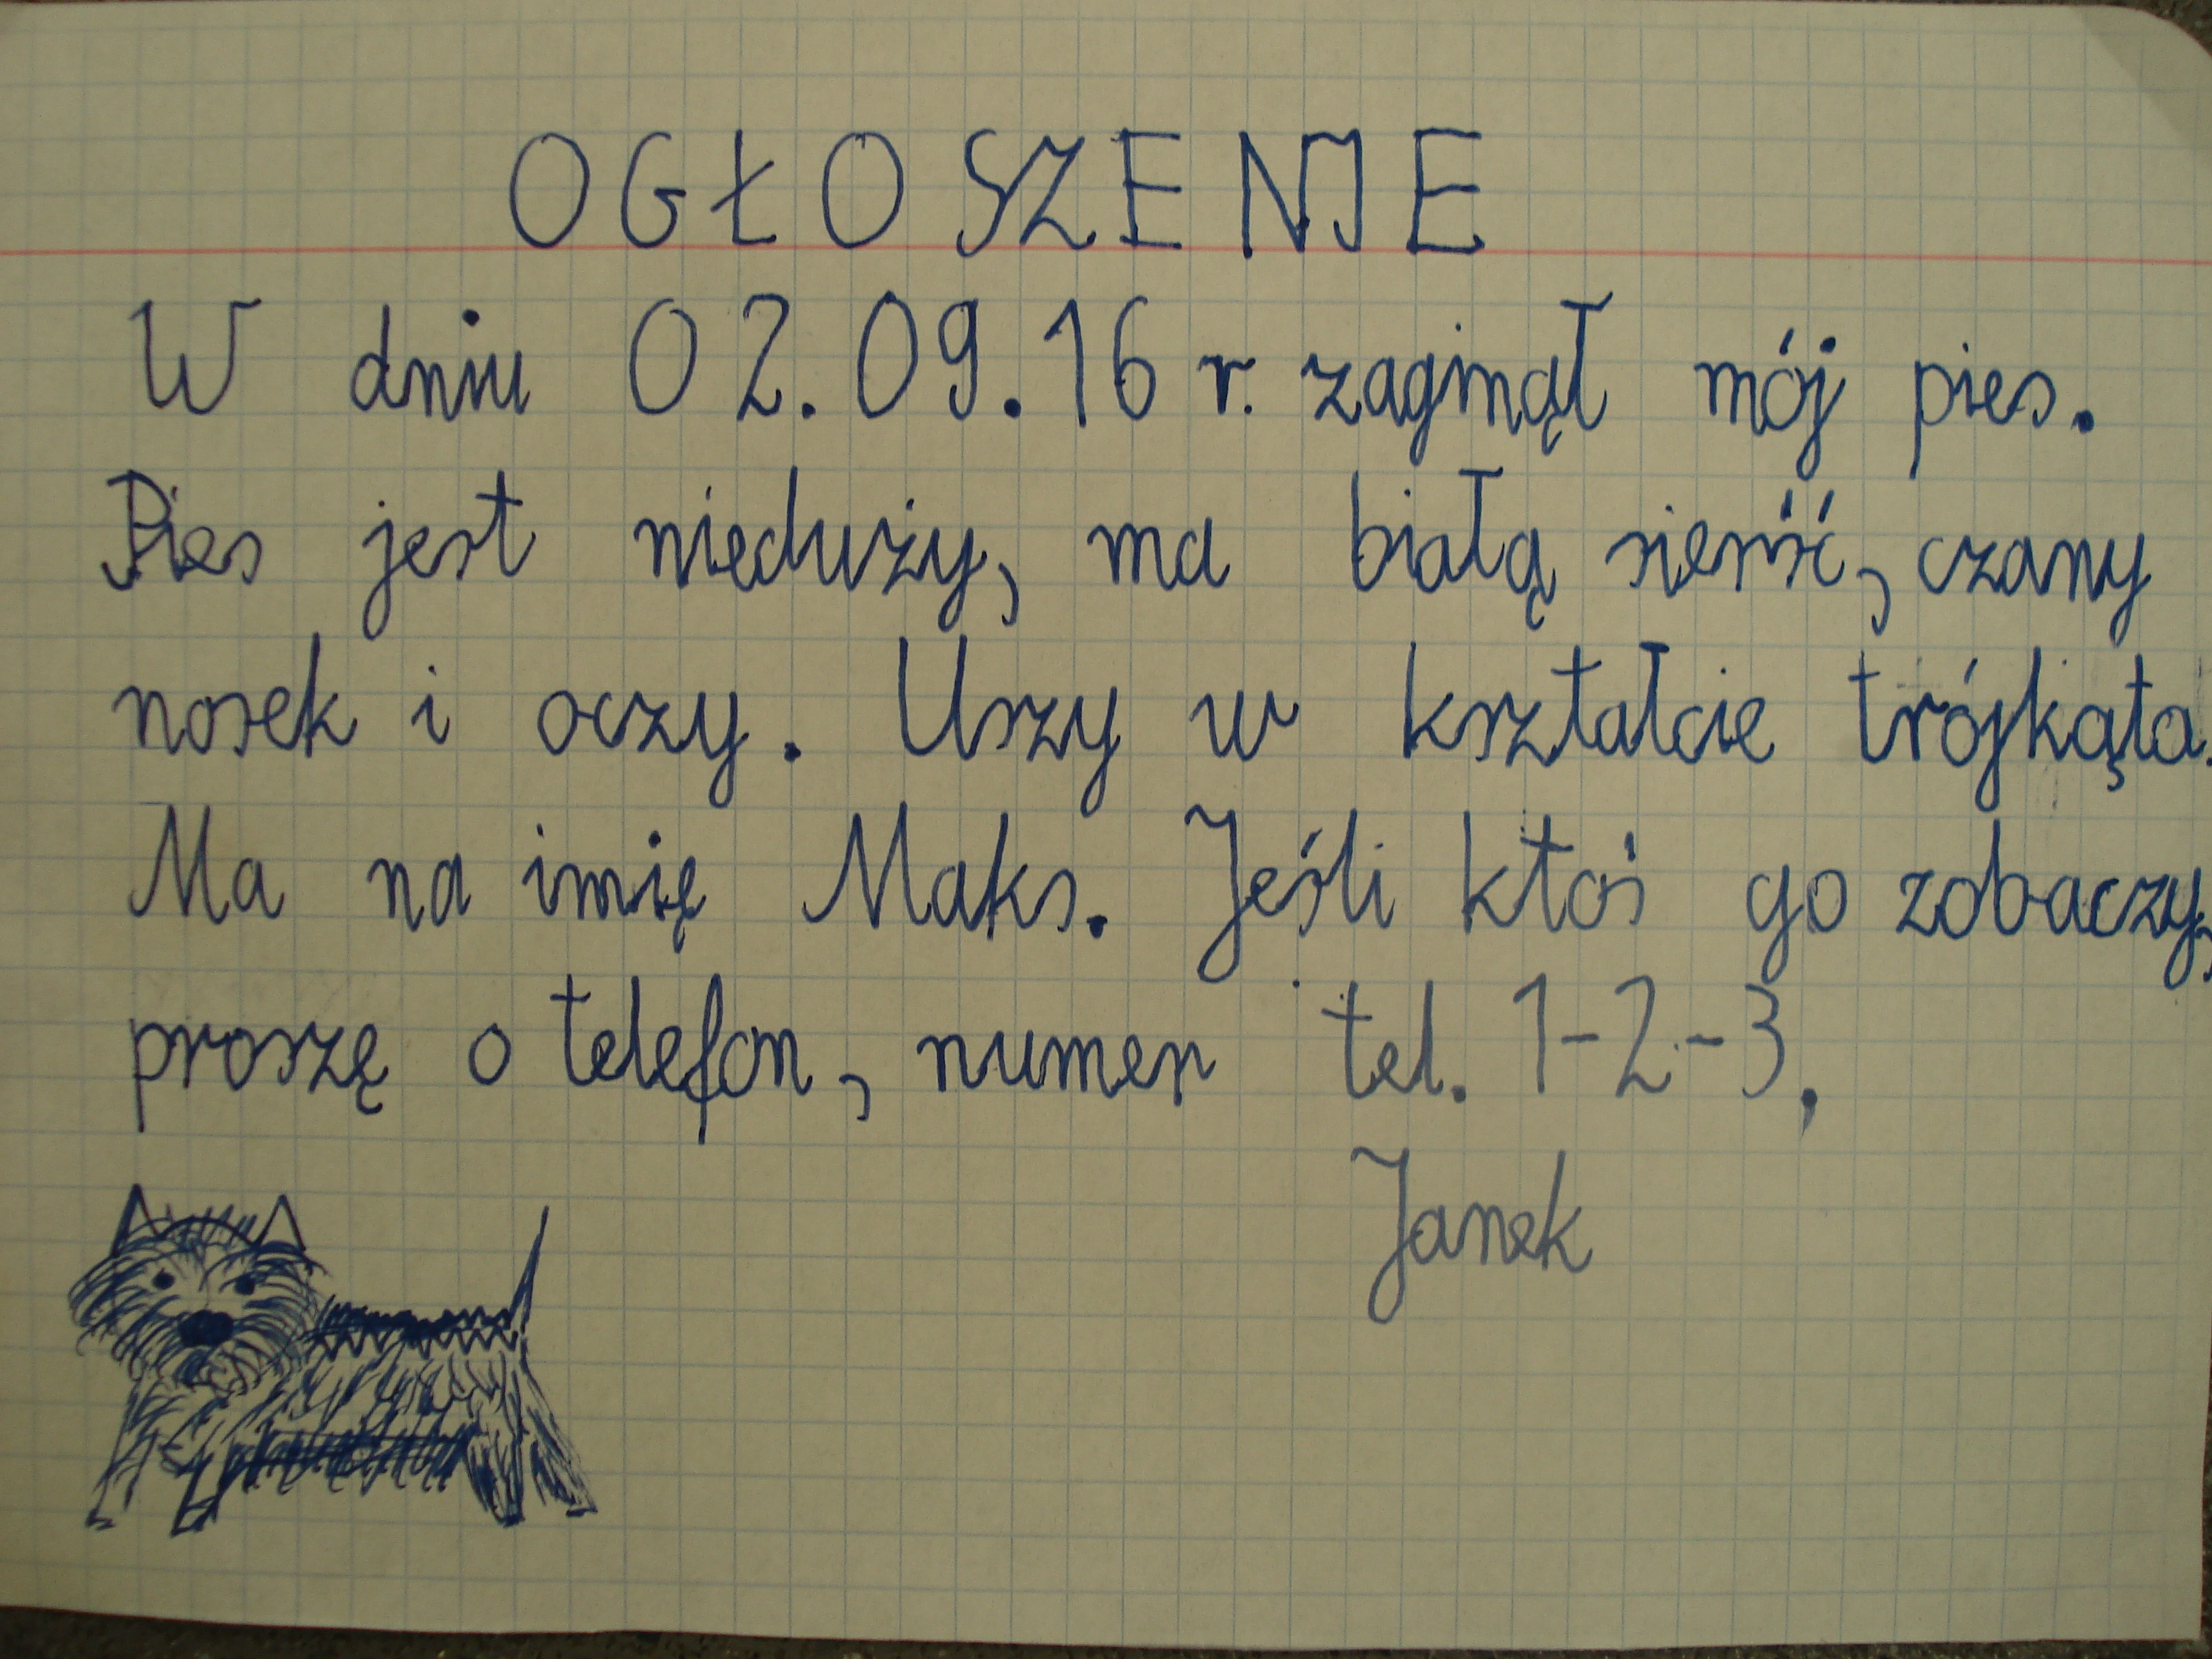 OGŁOSZENIE
W dniu 02.09.16 r. zaginął mój pies.
Pies jest nieduży, ma białą sierść, czany
nosek i oczy. Uszy w kształcie trójkąta.
Ma na imię Maks. Jeśli ktoś go zobaczy,
proszę o telefon, numer tel. 1-2-3,
Janek